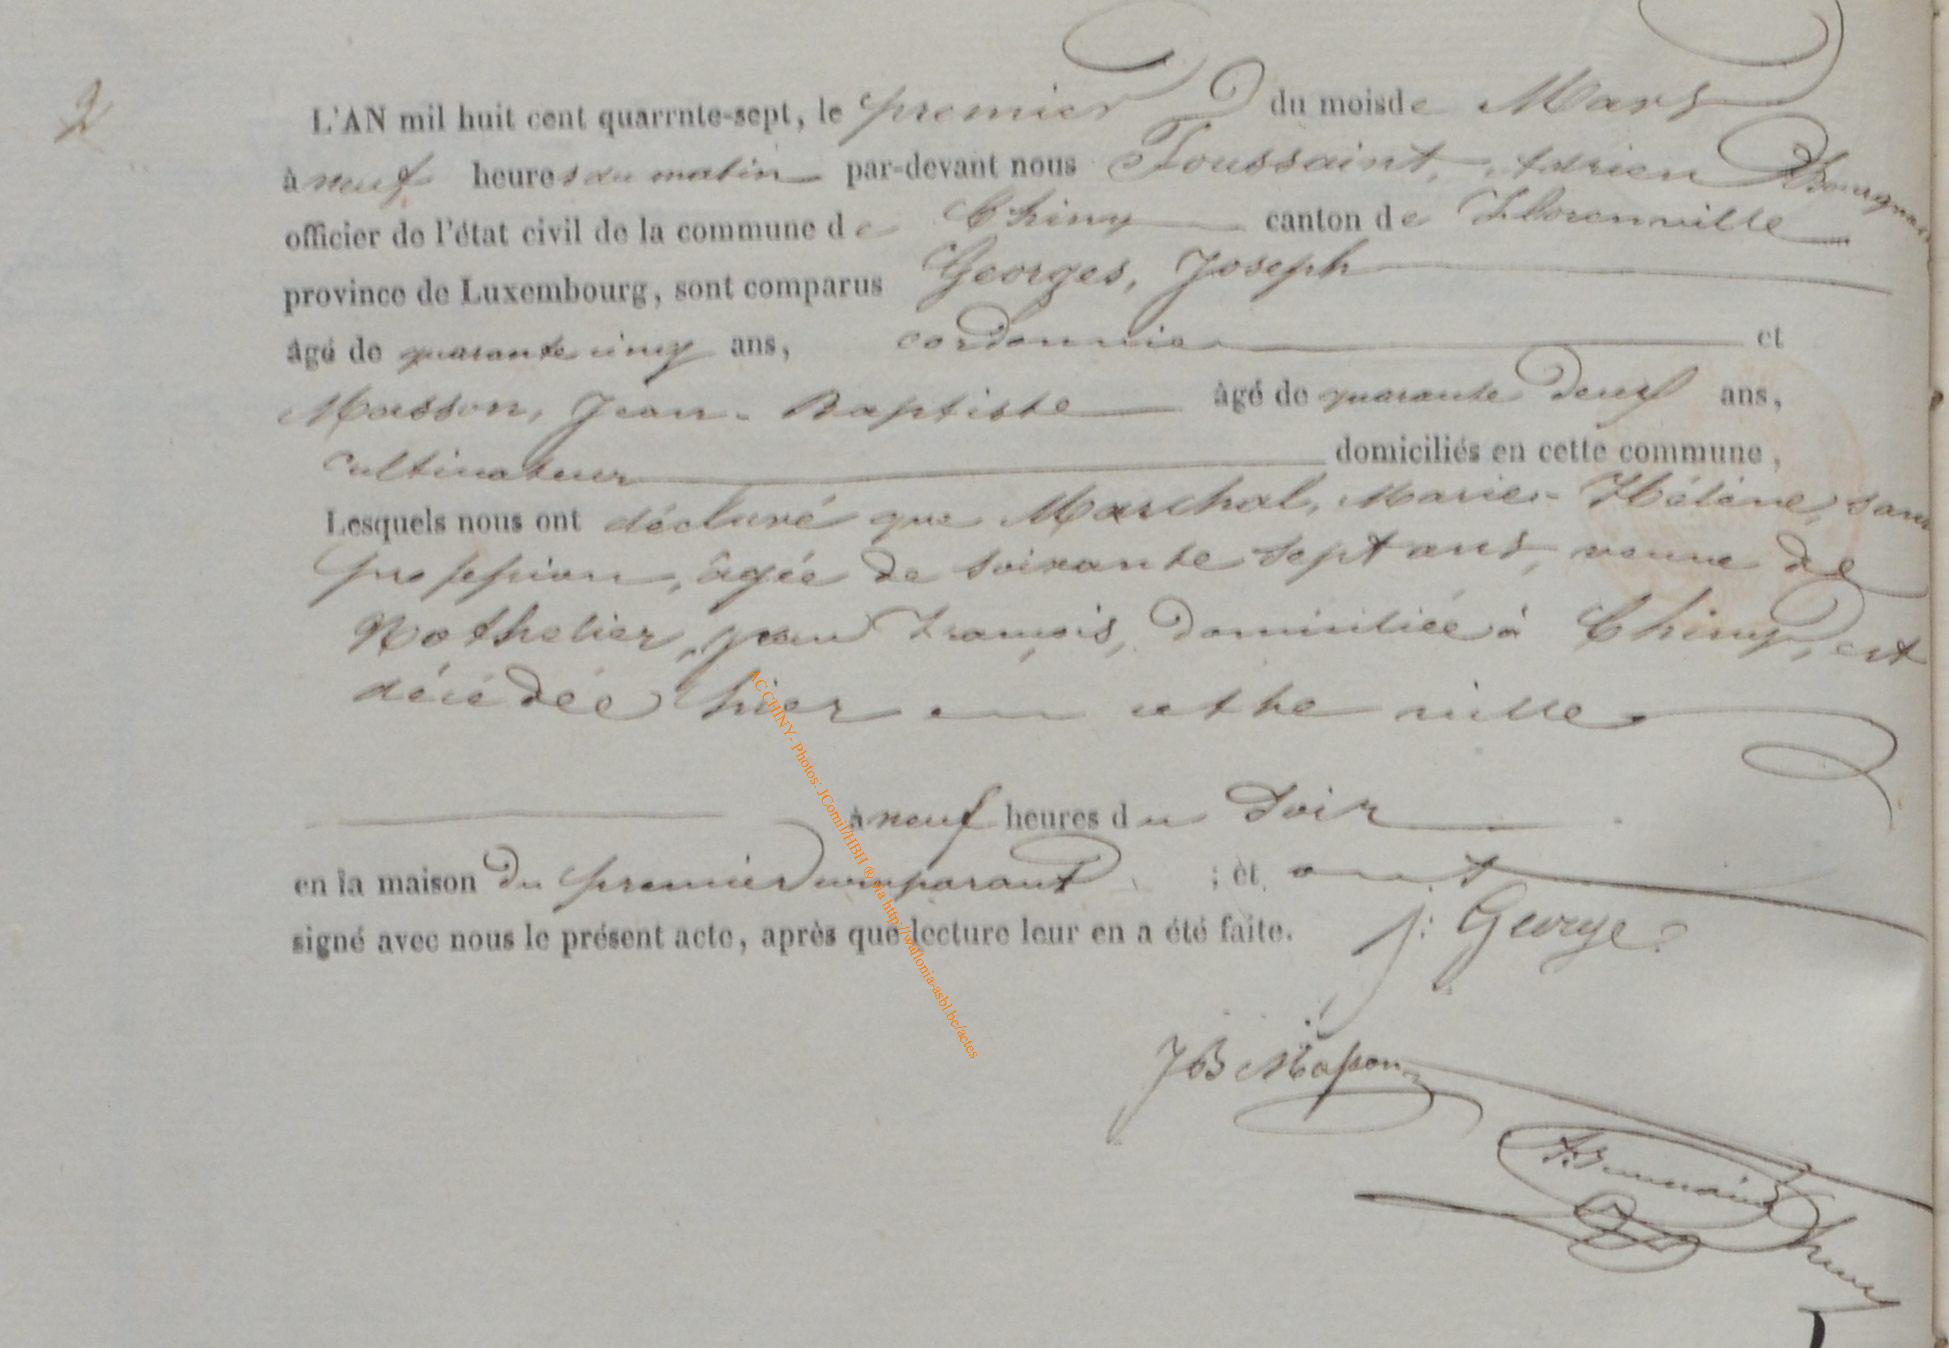 2
L'AN mil huit cent quarrnte-sept, le premier du moisde Mars
à neuf heures du matin par-devant nous Toussaint, Adrien
officier de l'état civil de la commune de Chiny canton de Florenville
province de Luxembourg, sont comparus Georges, Joseph
âgé de quarante cinq ans, cordonnier et
Masson, Jean-Baptiste âgé de quarante deux ans,
cultivateur domiciliés en cette commune,
Lesquels nous ont déclaré que Marschal, Marie-Hélène, sans
profession, âgée de soixante sept ans, veuve de
Nothelier, jean François, domiciliée à Chiny, est
décédée hier en cette ville
à neuf heures du Soir
en la maison du premier comparant ; et ont
signé avec nous le présent acte, après que lecture leur en a été faite.
j: George
JB Masson
AC CHINY - Photos: JCornil/HBH ® via http://wallonia-asbl.be/actes